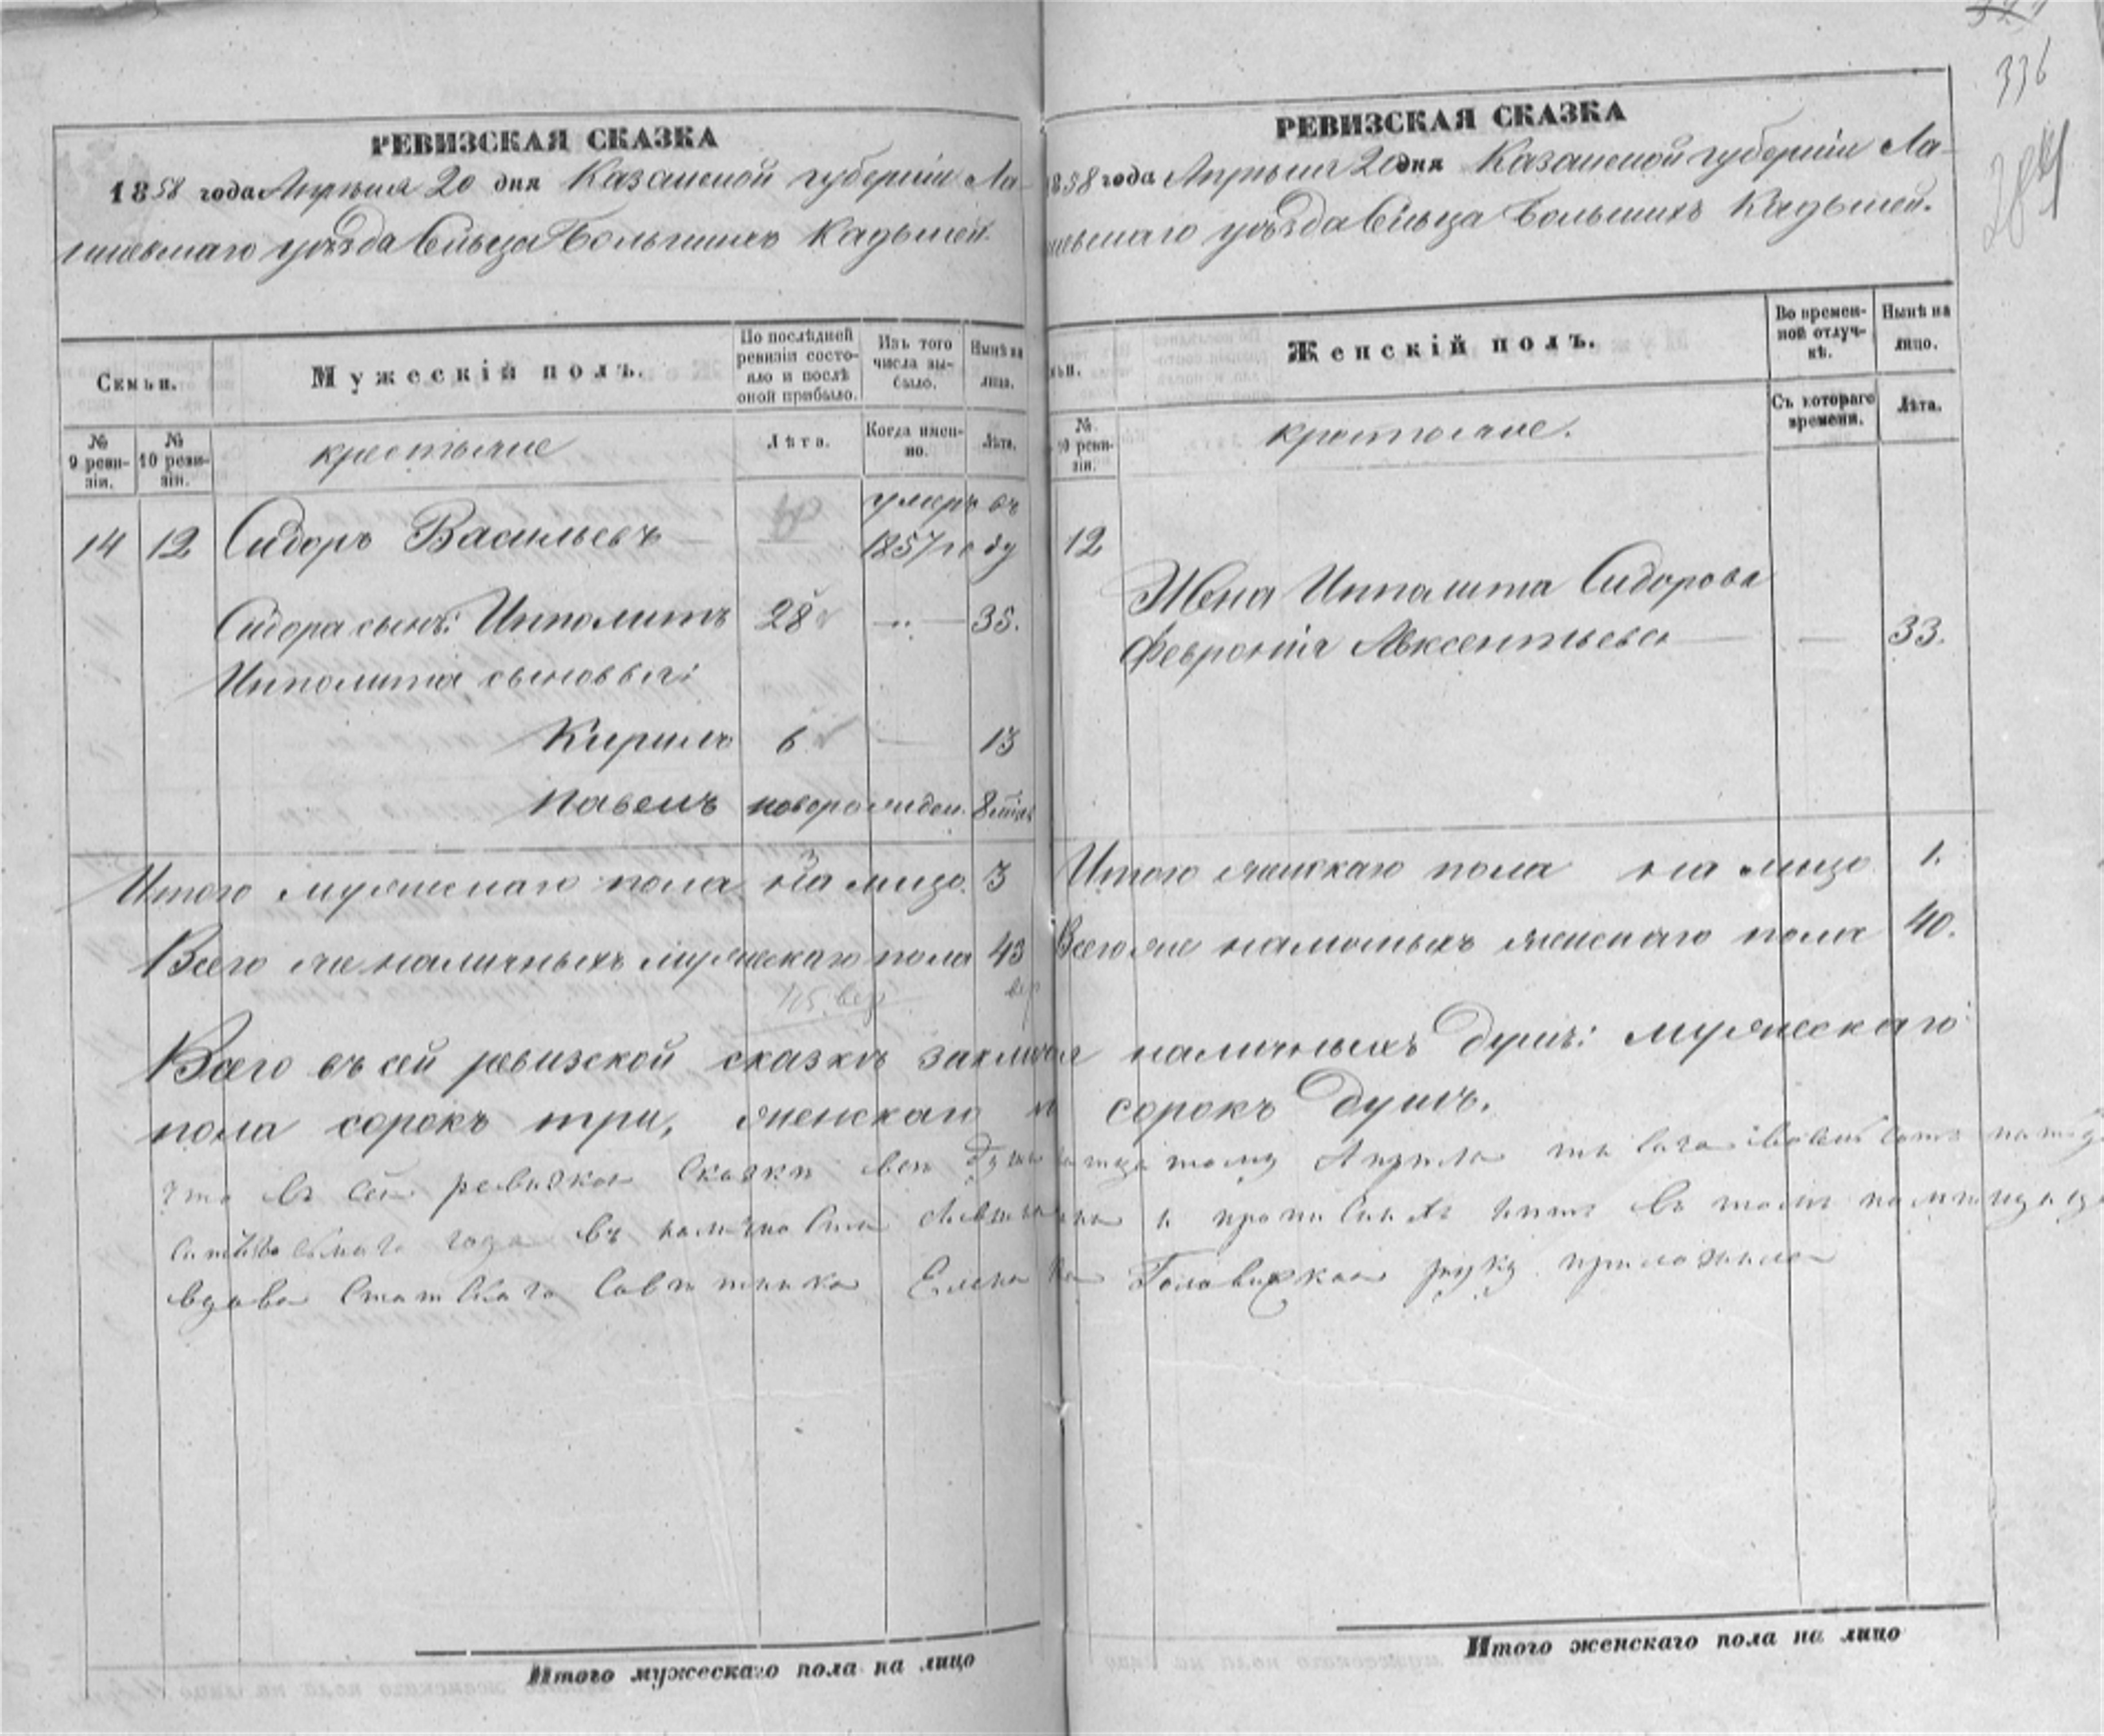 336
РЕВИЗСКАЯ СКАЗКА
1858 года Апрѣля 20 дня Казанской губерніи Ла-
ишевскаго уѣзда Сельца Большихъ Кадышей.
Семьи.
Мужескій полъ.
По послѣдней ревизіи состояло и послѣ оной прибыло.
Изъ того числа выбыло.
Нынѣ на лицо.
№ 9 ревизіи.
№ 10 ревизіи.
крестьяне
Лѣта.
Когда именно.
Лѣта.
14 12 Сидоръ Васильевъ умеръ въ 1857 году
Сидора сынъ: Ипполитъ 28 35.
Ипполита сыновья:
Кирилъ 6 13
Павелъ новорожден. 8
Итого мужескаго пола на лицо. 3
Всего же наличныхъ мужескаго пола 43
РЕВИЗСКАЯ СКАЗКА
1858 года Апрѣля 20 дня Казанской губерніи Ла-
ишевскаго уѣзда Сельца Большихъ Кадышей.
Женскій полъ.
Во временной отлучкѣ.
Нынѣ на лицо.
№ 10 ревизіи.
крестьяне.
Съ котораго времени.
Лѣта.
12
Жена Ипполита Сидорова
Февронія Авксентьева 33.
Итого женскаго пола на лицо 1.
Всего же наличныхъ женскаго пола 40.
Всего въ сей ревизской сказкѣ наличныхъ душъ: мужескаго
пола сорокъ три, женскаго сорокъ душъ.
что въ сей ревизкой сказки всѣ душы Апреля
года въ и прописныхъ нетъ въ томъ
вдова Статскаго Советника Елена Головизская руку приложила
Итого мужескаго пола на лицо
Итого женскаго пола на лицо